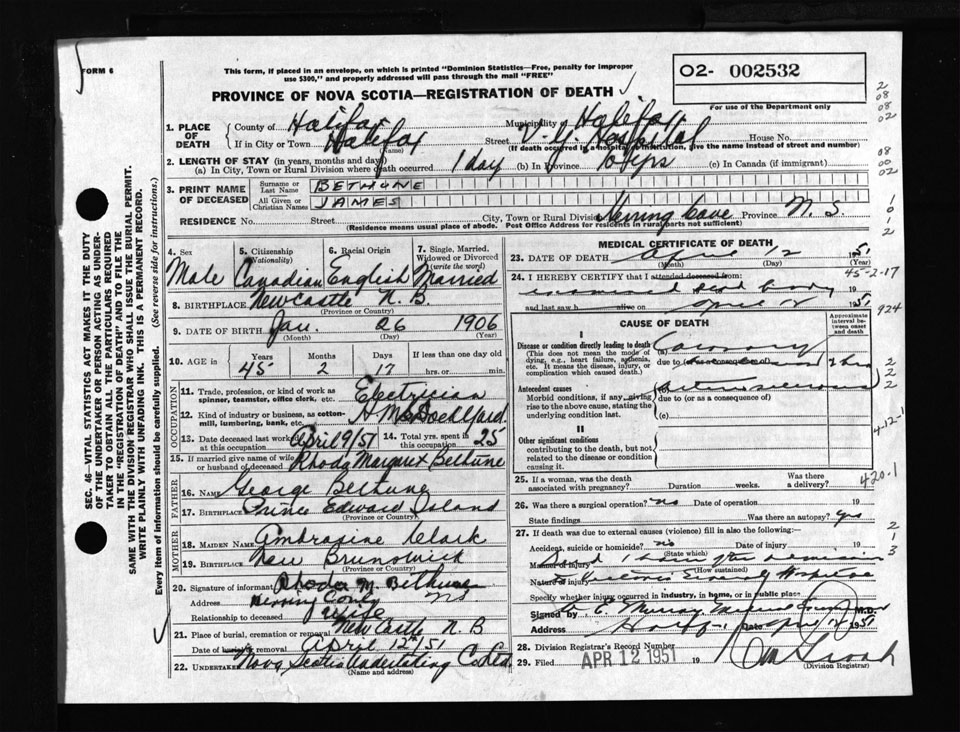 FORM 6
This form, if placed in an envelope, on which is printed "Dominion Statistics—Free, penalty for improper
use $300," and properly addressed will pass through the mail "FREE"
02- 002532
For use of the Department only
PROVINCE OF NOVA SCOTIA—REGISTRATION OF DEATH
1. PLACE OF DEATH
County of Halifax Municipality of Halifax
If in City or Town Halifax Street V.G. Hospital House No.
(Name) (If death occurred in a hospital or institution, give the name instead of street and number)
2. LENGTH OF STAY (in years, months and days)
(a) In City, Town or Rural Division where death occurred 1 day (b) In Province 10 yrs (c) In Canada (if immigrant)
3. PRINT NAME OF DECEASED
Surname or Last Name BETHUNE
All Given or Christian Names JAMES
RESIDENCE No. Street City, Town or Rural Division Herring Cove Province N.S.
(Residence means usual place of abode. Post Office Address for residents in rural parts not sufficient)
4. Sex Male
5. Citizenship (Nationality) Canadian
6. Racial Origin English
7. Single, Married, Widowed or Divorced (write the word) Married
8. BIRTHPLACE Newcastle N.B.
(Province or Country)
9. DATE OF BIRTH Jan. 26 1906
(Month) (Day) (Year)
10. AGE in Years 45 Months 2 Days 17 If less than one day old hrs. or min.
OCCUPATION
11. Trade, profession, or kind of work as spinner, teamster, office clerk, etc. Electrician
12. Kind of industry or business, as cotton-mill, lumbering, bank, etc. Dockyard
13. Date deceased last worked at this occupation April 9/51 14. Total yrs. spent in this occupation 25
15. If married give name of wife or husband of deceased Rhoda Margaret Bethune
FATHER
16. NAME George Bethune
17. BIRTHPLACE Prince Edward Island
(Province or Country)
MOTHER
18. MAIDEN NAME Ambrozine Clark
19. BIRTHPLACE New Brunswick
(Province or Country)
20. Signature of informant Rhoda M. Bethune
Address NS
Relationship to deceased Wife
21. Place of burial, cremation or removal New Castle N.B
Date of burial or removal April 12th/51
22. UNDERTAKER Nova Scotia Undertaking Co. Ltd.
(Name and address)
MEDICAL CERTIFICATE OF DEATH
23. DATE OF DEATH April 12 1951
(Month) (Day) (Year)
24. I HEREBY CERTIFY that I attended deceased from
dead body 19
and last saw h alive on April 1951
CAUSE OF DEATH
Approximate interval between onset and death
I
Disease or condition directly leading to death
(This does not mean the mode of dying, e.g., heart failure, asthenia, etc. It means the disease, injury, or complication which caused death.)
(a) Coronary
due to
Antecedent causes
Morbid conditions, if any giving rise to the above cause, stating the underlying condition last.
(b)
due to (or as a consequence of)
(c)
II
Other significant conditions
contributing to the death, but not related to the disease or condition causing it.
25. If a woman, was the death associated with pregnancy? Duration weeks. Was there a delivery?
26. Was there a surgical operation? no Date of operation 19
State findings Was there an autopsy? yes
27. If death was due to external causes (violence) fill in also the following:
Accident, suicide or homicide? no Date of injury 19
(State which)
Manner of injury
(How sustained)
Nature of injury
Specify whether injury occurred in industry, in home, or in public place
Signed by E. Murray M.D.
Address Date April 12 1951
28. Division Registrar's Record Number
29. Filed APR 12 1951 19
(Division Registrar)
SEC. 46—VITAL STATISTICS ACT MAKES IT THE DUTY
OF THE UNDERTAKER OR PERSON ACTING AS UNDER-
TAKER TO OBTAIN ALL THE PARTICULARS REQUIRED
IN THE "REGISTRATION OF DEATH" AND TO FILE THE
SAME WITH THE DIVISION REGISTRAR WHO SHALL ISSUE THE BURIAL PERMIT.
WRITE PLAINLY WITH UNFADING INK. THIS IS A PERMANENT RECORD.
Every item of information should be carefully supplied. (See reverse side for instructions.)
2
08
08
02
08
00
02
1
0
1
2
45-2-17
924
2
2
2
4-12-1
420.1
2
1
3